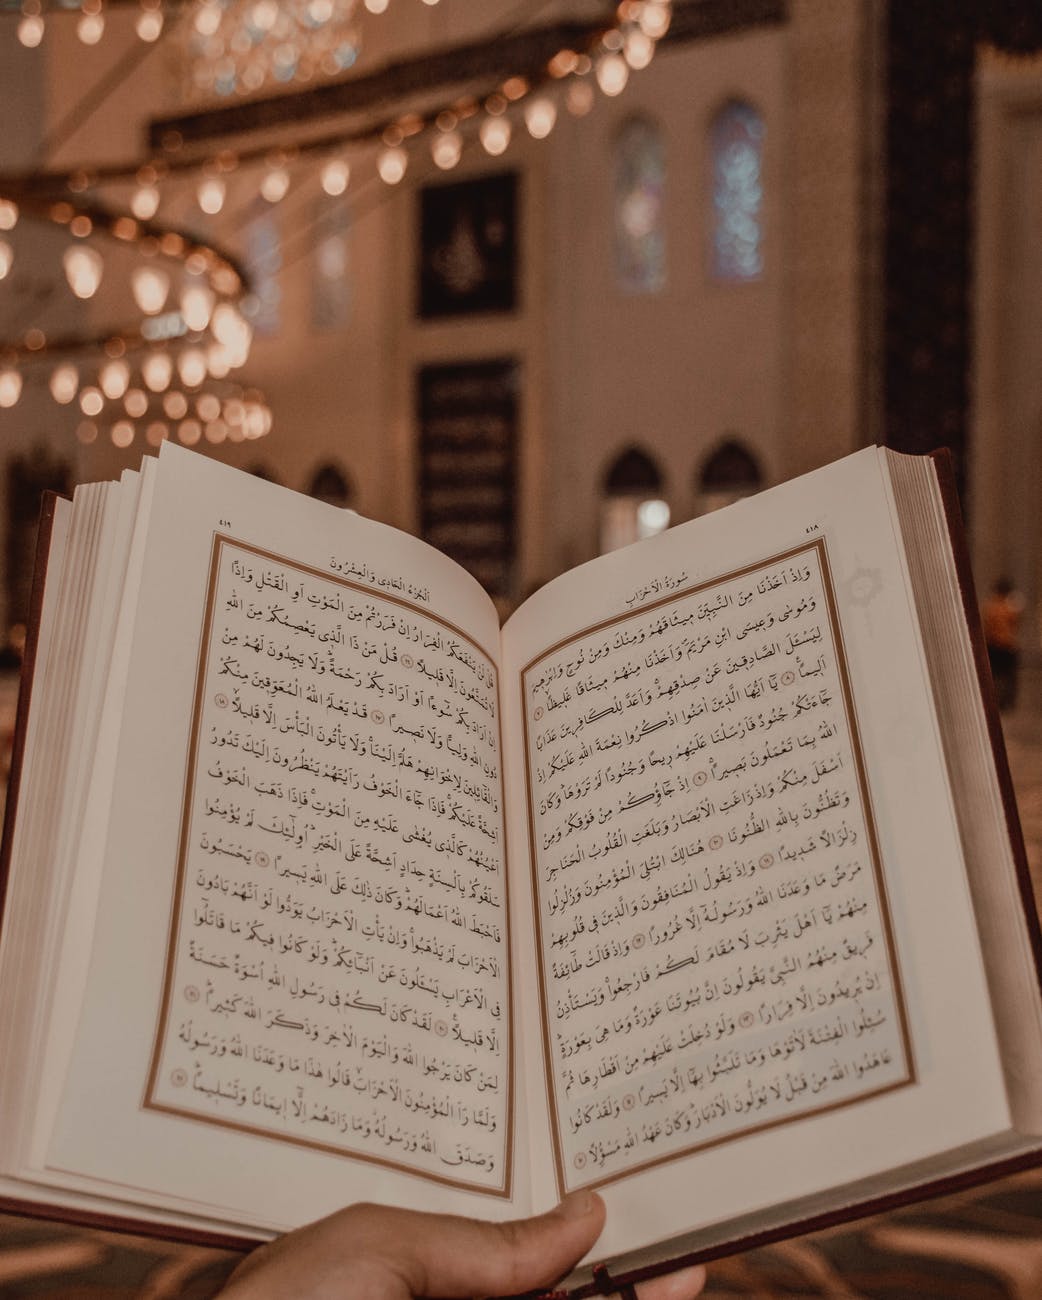 ٤١٨
سُورَةُ الْاَحْزَابِ
وَاِذْ اَخَذْنَا مِنَ النَّبِيّ۪نَ م۪يثَاقَهُمْ وَمِنْكَ وَمِنْ نُوحٍ وَاِبْرٰه۪يمَ
وَمُوسٰى وَع۪يسَى ابْنِ مَرْيَمَ وَاَخَذْنَا مِنْهُمْ م۪يثَاقًا غَل۪يظًاۙ ٧
لِيَسْـَٔلَ الصَّادِق۪ينَ عَنْ صِدْقِهِمْۚ وَاَعَدَّ لِلْكَافِر۪ينَ عَذَابًا
اَل۪يمًا۟ ٨ يَٓا اَيُّهَا الَّذ۪ينَ اٰمَنُوا اذْكُرُوا نِعْمَةَ اللّٰهِ عَلَيْكُمْ اِذْ
جَٓاءَتْكُمْ جُنُودٌ فَاَرْسَلْنَا عَلَيْهِمْ ر۪يحًا وَجُنُودًا لَمْ تَرَوْهَاۜ وَكَانَ
اللّٰهُ بِمَا تَعْمَلُونَ بَص۪يرًاۚ ٩ اِذْ جَٓاؤُ۫كُمْ مِنْ فَوْقِكُمْ وَمِنْ
اَسْفَلَ مِنْكُمْ وَاِذْ زَاغَتِ الْاَبْصَارُ وَبَلَغَتِ الْقُلُوبُ الْحَنَاجِرَ
وَتَظُنُّونَ بِاللّٰهِ الظُّنُونَا ١٠ هُنَالِكَ ابْتُلِيَ الْمُؤْمِنُونَ وَزُلْزِلُوا
زِلْزَالًا شَد۪يدًا ١١ وَاِذْ يَقُولُ الْمُنَافِقُونَ وَالَّذ۪ينَ ف۪ي قُلُوبِهِمْ
مَرَضٌ مَا وَعَدَنَا اللّٰهُ وَرَسُولُهُٓ اِلَّا غُرُورًا ١٢ وَاِذْ قَالَتْ طَٓائِفَةٌ
مِنْهُمْ يَٓا اَهْلَ يَثْرِبَ لَا مُقَامَ لَكُمْ فَارْجِعُواۚ وَيَسْتَأْذِنُ
فَر۪يقٌ مِنْهُمُ النَّبِيَّ يَقُولُونَ اِنَّ بُيُوتَنَا عَوْرَةٌ وَمَا هِيَ بِعَوْرَةٍۚ
اِنْ يُر۪يدُونَ اِلَّا فِرَارًا ١٣ وَلَوْ دُخِلَتْ عَلَيْهِمْ مِنْ اَقْطَارِهَا ثُمَّ
سُئِلُوا الْفِتْنَةَ لَاٰتَوْهَا وَمَا تَلَبَّثُوا بِهَٓا اِلَّا يَس۪يرًا ١٤ وَلَقَدْ كَانُوا
عَاهَدُوا اللّٰهَ مِنْ قَبْلُ لَا يُوَلُّونَ الْاَدْبَارَۜ وَكَانَ عَهْدُ اللّٰهِ مَسْؤُ۫لًا ١٥
٤١٩
اَلْجُزْءُ الْحَادِي وَالْعِشْرُونَ
قُلْ لَنْ يَنْفَعَكُمُ الْفِرَارُ اِنْ فَرَرْتُمْ مِنَ الْمَوْتِ اَوِ الْقَتْلِ وَاِذًا
لَا تُمَتَّعُونَ اِلَّا قَل۪يلًا ١٦ قُلْ مَنْ ذَا الَّذ۪ي يَعْصِمُكُمْ مِنَ اللّٰهِ
اِنْ اَرَادَ بِكُمْ سُٓوءًا اَوْ اَرَادَ بِكُمْ رَحْمَةًۜ وَلَا يَجِدُونَ لَهُمْ مِنْ
دُونِ اللّٰهِ وَلِيًّا وَلَا نَص۪يرًا ١٧ قَدْ يَعْلَمُ اللّٰهُ الْمُعَوِّق۪ينَ مِنْكُمْ
وَالْقَٓائِل۪ينَ لِاِخْوَانِهِمْ هَلُمَّ اِلَيْنَاۚ وَلَا يَأْتُونَ الْبَأْسَ اِلَّا قَل۪يلًاۙ ١٨
اَشِحَّةً عَلَيْكُمْۚ فَاِذَا جَٓاءَ الْخَوْفُ رَاَيْتَهُمْ يَنْظُرُونَ اِلَيْكَ تَدُورُ
اَعْيُنُهُمْ كَالَّذ۪ي يُغْشٰى عَلَيْهِ مِنَ الْمَوْتِۚ فَاِذَا ذَهَبَ الْخَوْفُ
سَلَقُوكُمْ بِاَلْسِنَةٍ حِدَادٍ اَشِحَّةً عَلَى الْخَيْرِۜ اُو۬لٰٓئِكَ لَمْ يُؤْمِنُوا
فَاَحْبَطَ اللّٰهُ اَعْمَالَهُمْۜ وَكَانَ ذٰلِكَ عَلَى اللّٰهِ يَس۪يرًا ١٩ يَحْسَبُونَ
الْاَحْزَابَ لَمْ يَذْهَبُواۚ وَاِنْ يَأْتِ الْاَحْزَابُ يَوَدُّوا لَوْ اَنَّهُمْ بَادُونَ
فِي الْاَعْرَابِ يَسْـَٔلُونَ عَنْ اَنْبَٓائِكُمْۜ وَلَوْ كَانُوا ف۪يكُمْ مَا قَاتَلُٓوا
اِلَّا قَل۪يلًا۟ ٢٠ لَقَدْ كَانَ لَكُمْ ف۪ي رَسُولِ اللّٰهِ اُسْوَةٌ حَسَنَةٌ
لِمَنْ كَانَ يَرْجُوا اللّٰهَ وَالْيَوْمَ الْاٰخِرَ وَذَكَرَ اللّٰهَ كَث۪يرًاۜ ٢١
وَلَمَّا رَاَ الْمُؤْمِنُونَ الْاَحْزَابَۙ قَالُوا هٰذَا مَا وَعَدَنَا اللّٰهُ وَرَسُولُهُ
وَصَدَقَ اللّٰهُ وَرَسُولُهُۘ وَمَا زَادَهُمْ اِلَّٓا ا۪يمَانًا وَتَسْل۪يمًاۜ ٢٢